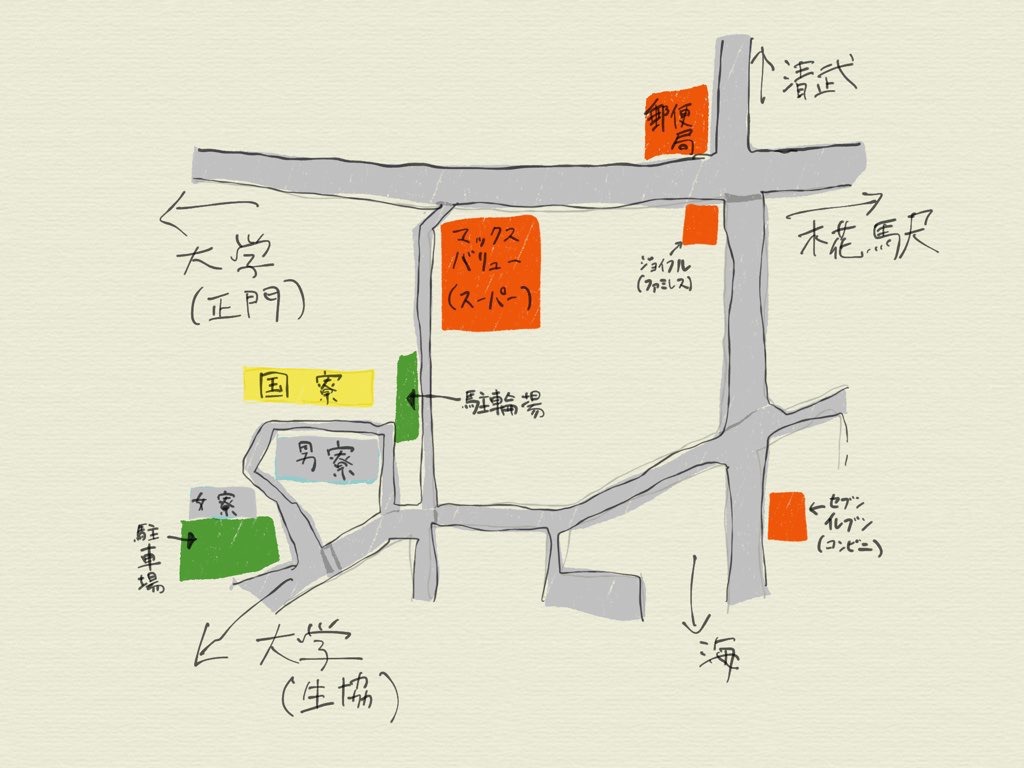 清武
郵便
局
木花駅
大学
(正門)
マックス
バリュー
(スーパー)
ジョイフル
(ファミレス)
国寮
駐輪場
男寮
女寮
駐車場
セブン
イレブン
(コンビニ)
大学
(生協)
海